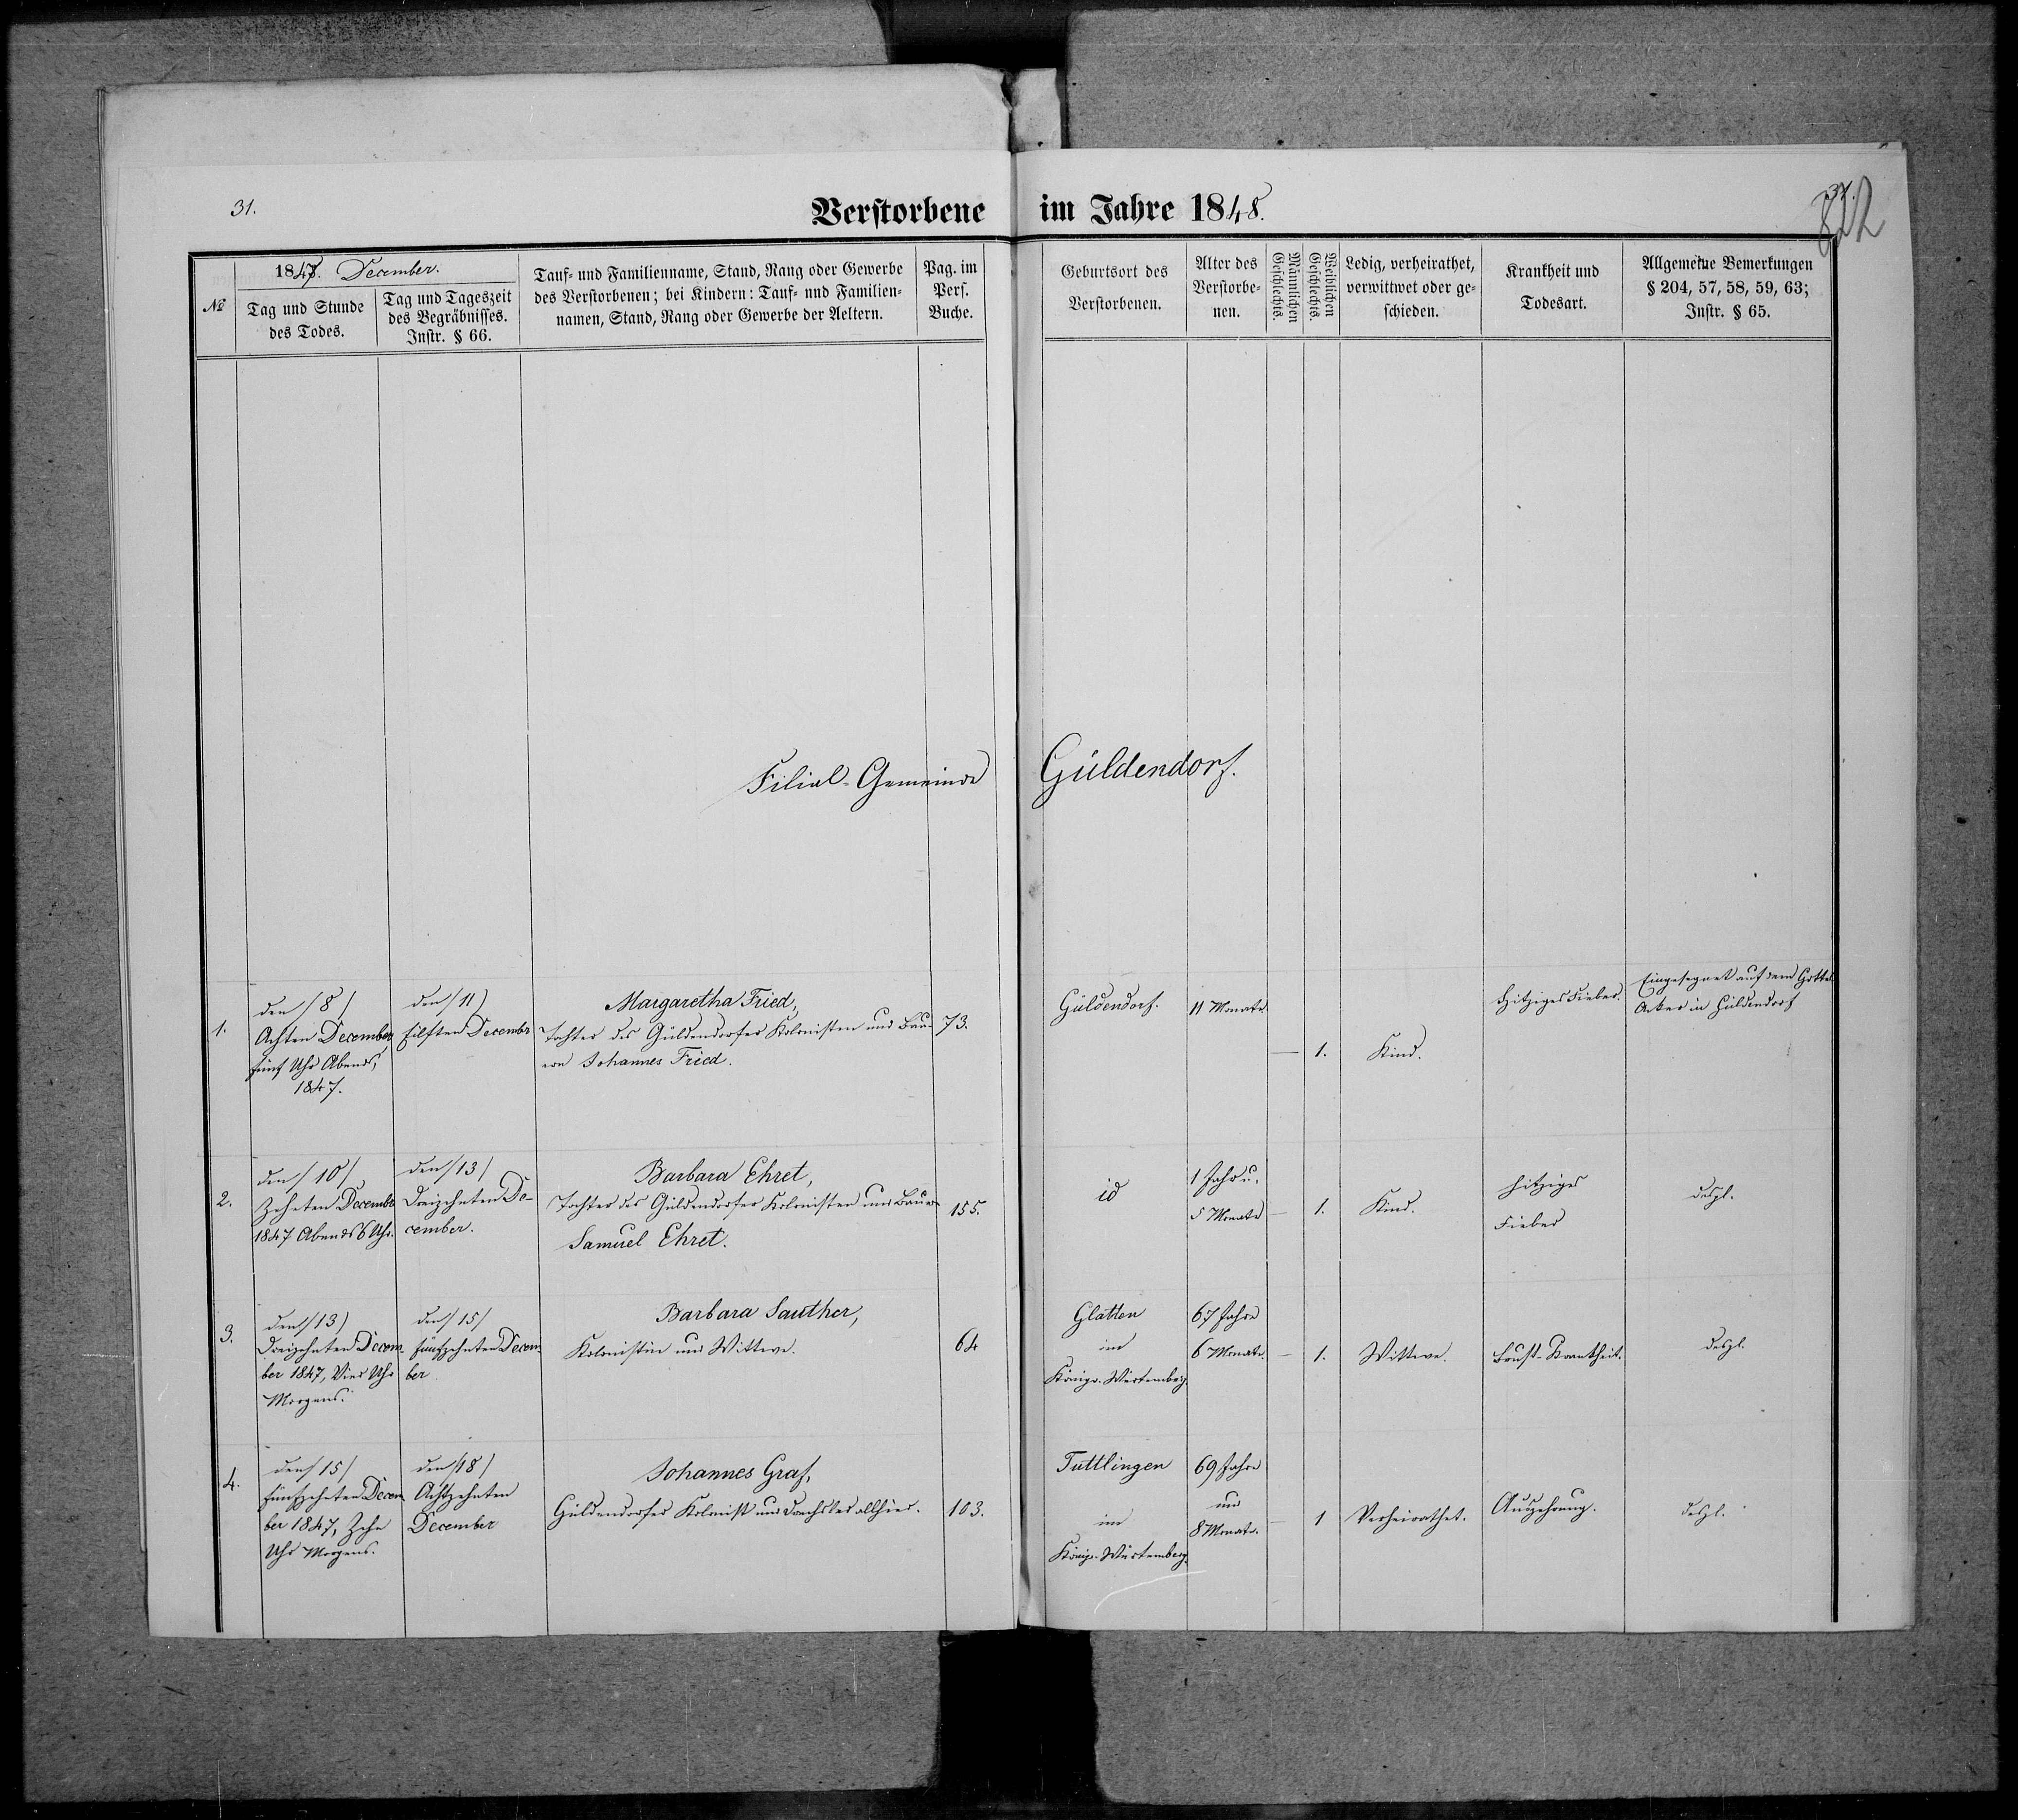 31.
Verstorbene im Jahre 1848.
31.
822
№
1847. December.
Tag und Stunde
des Todes.
Tag und Tageszeit
des Begräbnisses.
Instr. § 66.
Tauf- und Familienname, Stand, Rang oder Gewerbe
des Verstorbenen; bei Kindern: Tauf- und Familien-
namen, Stand, Rang oder Gewerbe der Aeltern.
Pag. im
Pers.
Buche.
Geburtsort des
Verstorbenen.
Alter des
Verstorbe-
nen.
Männlichen
Geschlechts.
Weiblichen
Geschlechts.
Ledig, verheirathet,
verwittwet oder ge-
schieden.
Krankheit und
Todesart.
Allgemeine Bemerkungen
§ 204, 57, 58, 59, 63;
Instr. § 65.
Filial-Gemeinde Güldendorf.
1.
den /8/
Achten December,
fünf Uhr Abends,
1847.
den /11/
Eilften Decembr
Margaretha Fried,
Tochter des Güldendorfer Kolonisten und Bau-
ern Johannes Fried.
73.
Güldendorf.
11 Monate.
—
1.
Kind.
Hitziges Fieber.
Eingesegnet auf dem Gottes
Acker in Güldendorf
2.
den /10/
Zehnten Decembr
1847 Abends 6 Uhr.
den /13/
Dreizehnten De-
cember.
Barbara Ehret,
Tochter des Güldendorfer Kolonisten und Bauern
Samuel Ehret.
155.
id
1 Jahr u.
5 Monate
—
1.
Kind.
hitziges
Fieber
desgl.
3.
den /13/
Dreizehnten Decem
ber 1847, Vier Uhr
Morgens.
den /15/
fünfzehnten Decem
ber
Barbara Sauther,
Kolonistin und Wittwe.
64
Glatten
im
Königr. Würtemberg.
67 Jahre
6 Monate.
—
1.
Wittwe.
Brust-Krankheit.
desgl.
4.
den /15/
fünfzehnten Decem
ber 1847, Zehn
Uhr Morgens.
den /18/
Achtzehnten
December
Johannes Graf,
Güldendorfer Kolonist und Drechsler allhier.
103.
Tuttlingen
im
Königr. Würtemberg.
69 Jahre
und
8 Monate.
—
1
Verheirathet.
Auszehrung.
desgl.